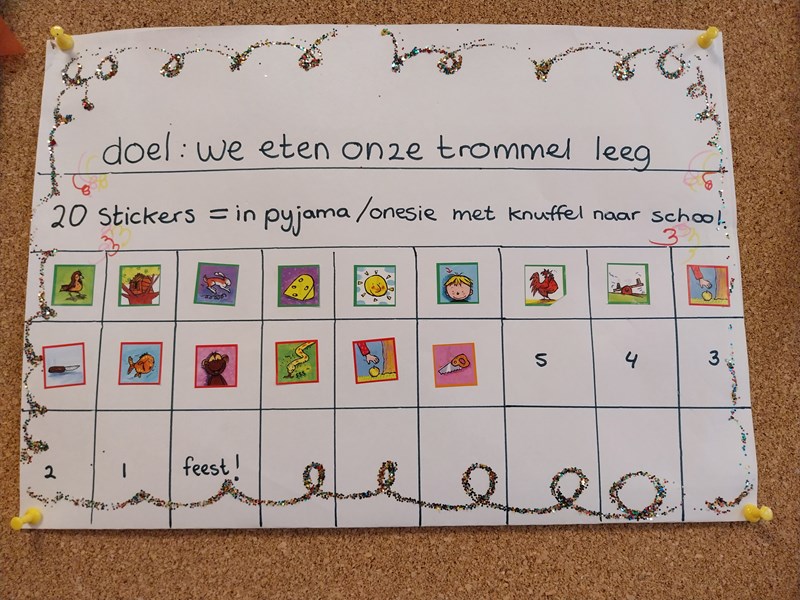 doel: we eten onze trommel leeg
20 stickers = in pyjama/onesie met knuffel naar school.
5 4 3
2 1 feest!